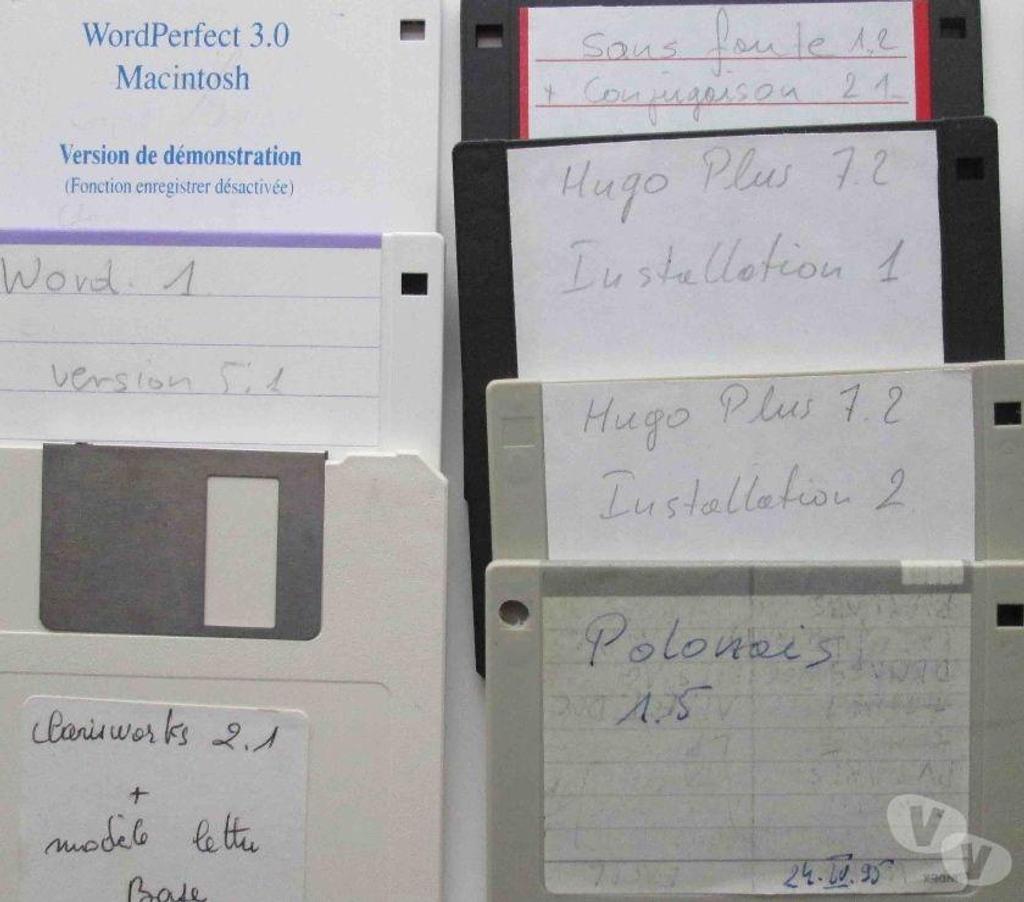 WordPerfect 3.0
Macintosh
Version de démonstration
(Fonction enregistrer désactivée)
Word. 1
version 5.1
clarisworks 2.1
+
modèle lettre
Base
Sans faute 1.2
+ Conjugaison 2.1
Hugo Plus 7.2
Installation 1
Hugo Plus 7.2
Installation 2
Polonais
1.5
24.IV.95
INDEX
VV